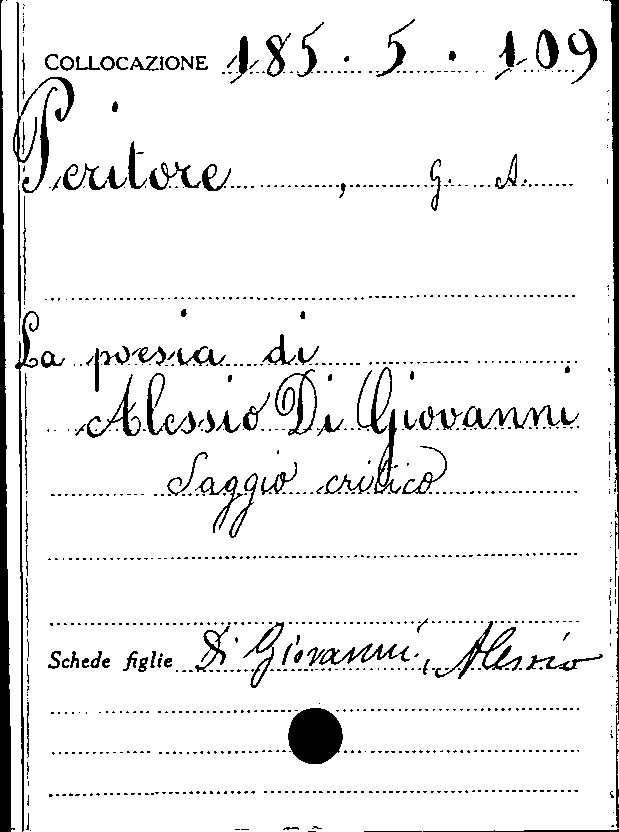 COLLOCAZIONE 185.5.109
Peritore, G. A.
La poesia di
Alessio Di Giovanni
Saggio critico
Schede figlie Di Giovanni, Alessio